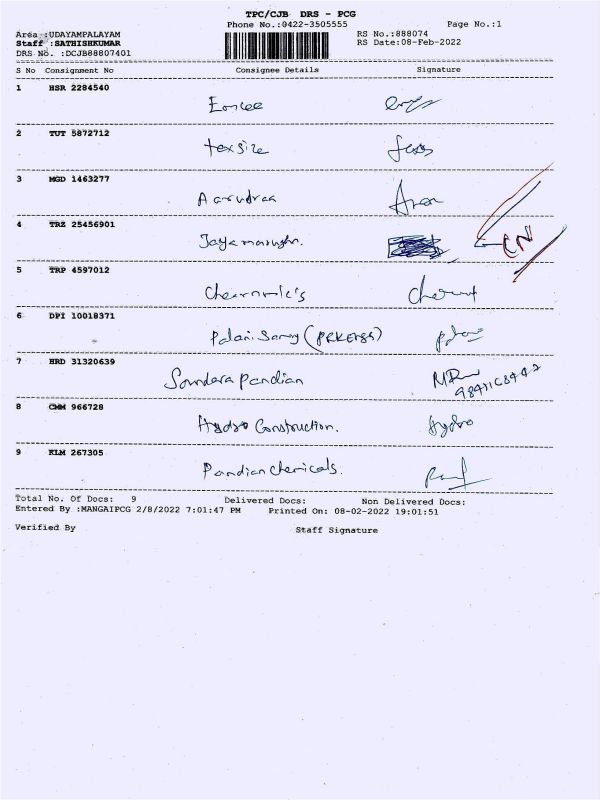 TPC/CJB DRS - PCG
Phone No.:0422-3505555 Page No.:1
Area :UDAYAMPALAYAM RS No.:888074
Staff :SATHISHKUMAR RS Date:08-Feb-2022
DRS No. :DCJB88807401
S No Consignment No Consignee Details Signature
1 HSR 2284540
2 TUT 5872712
texsize
3 MGD 1463277
Aarudraa
4 TRZ 25456901
CN
5 TRP 4597012
6 DPI 10018371
Palani Samy
7 HRD 31320639
Soundara pandian
8 CMM 966728
Hydro Construction. Hydro
9 KLM 267305
Pandian chemicals.
Total No. Of Docs: 9 Delivered Docs: Non Delivered Docs:
Entered By :MANGAIPCG 2/8/2022 7:01:47 PM Printed On: 08-02-2022 19:01:51
Verified By Staff Signature